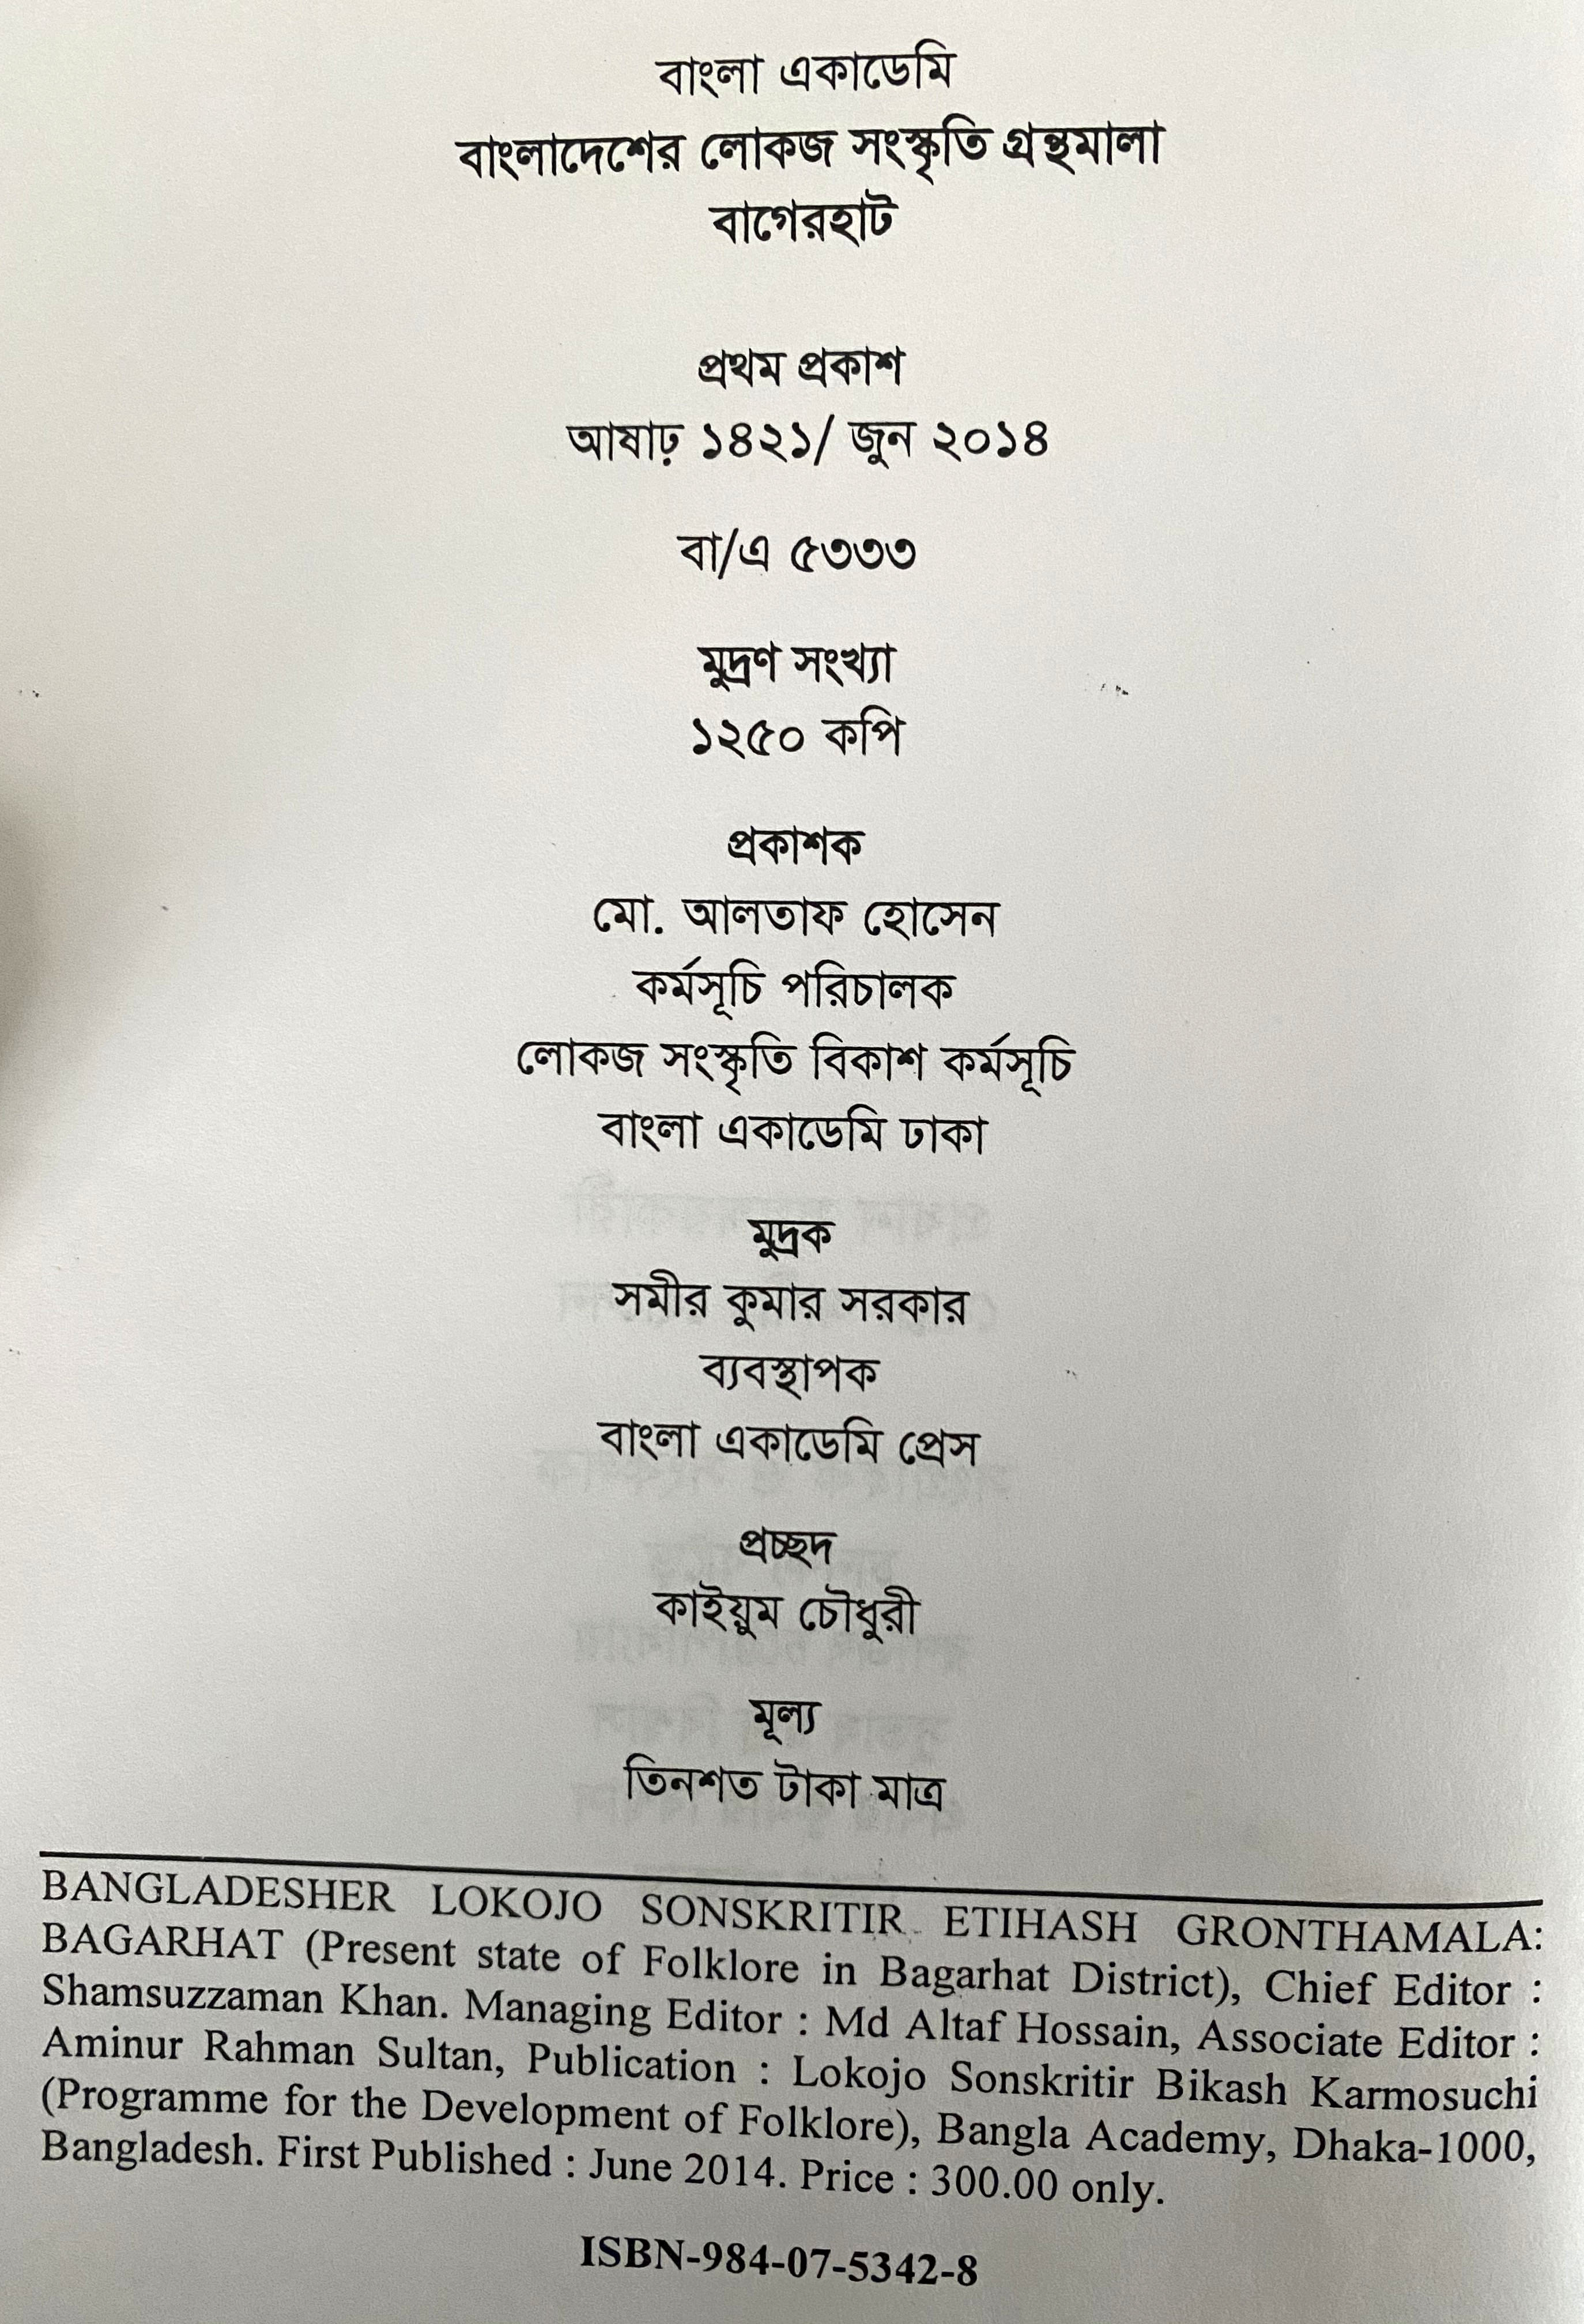 বাংলা একাডেমি
বাংলাদেশের লোকজ সংস্কৃতি গ্রন্থমালা
বাগেরহাট
প্রথম প্রকাশ
আষাঢ় ১৪২১/ জুন ২০১৪
বা/এ ৫৩৩৩
মুদ্রণ সংখ্যা
১২৫০ কপি
প্রকাশক
মো. আলতাফ হোসেন
কর্মসূচি পরিচালক
লোকজ সংস্কৃতি বিকাশ কর্মসূচি
বাংলা একাডেমি ঢাকা
মুদ্রক
সমীর কুমার সরকার
ব্যবস্থাপক
বাংলা একাডেমি প্রেস
প্রচ্ছদ
কাইয়ুম চৌধুরী
মূল্য
তিনশত টাকা মাত্র
BANGLADESHER LOKOJO SONSKRITIR ETIHASH GRONTHAMALA:
BAGARHAT (Present state of Folklore in Bagarhat District), Chief Editor :
Shamsuzzaman Khan. Managing Editor : Md Altaf Hossain, Associate Editor :
Aminur Rahman Sultan, Publication : Lokojo Sonskritir Bikash Karmosuchi
(Programme for the Development of Folklore), Bangla Academy, Dhaka-1000,
Bangladesh. First Published : June 2014. Price : 300.00 only.
ISBN-984-07-5342-8